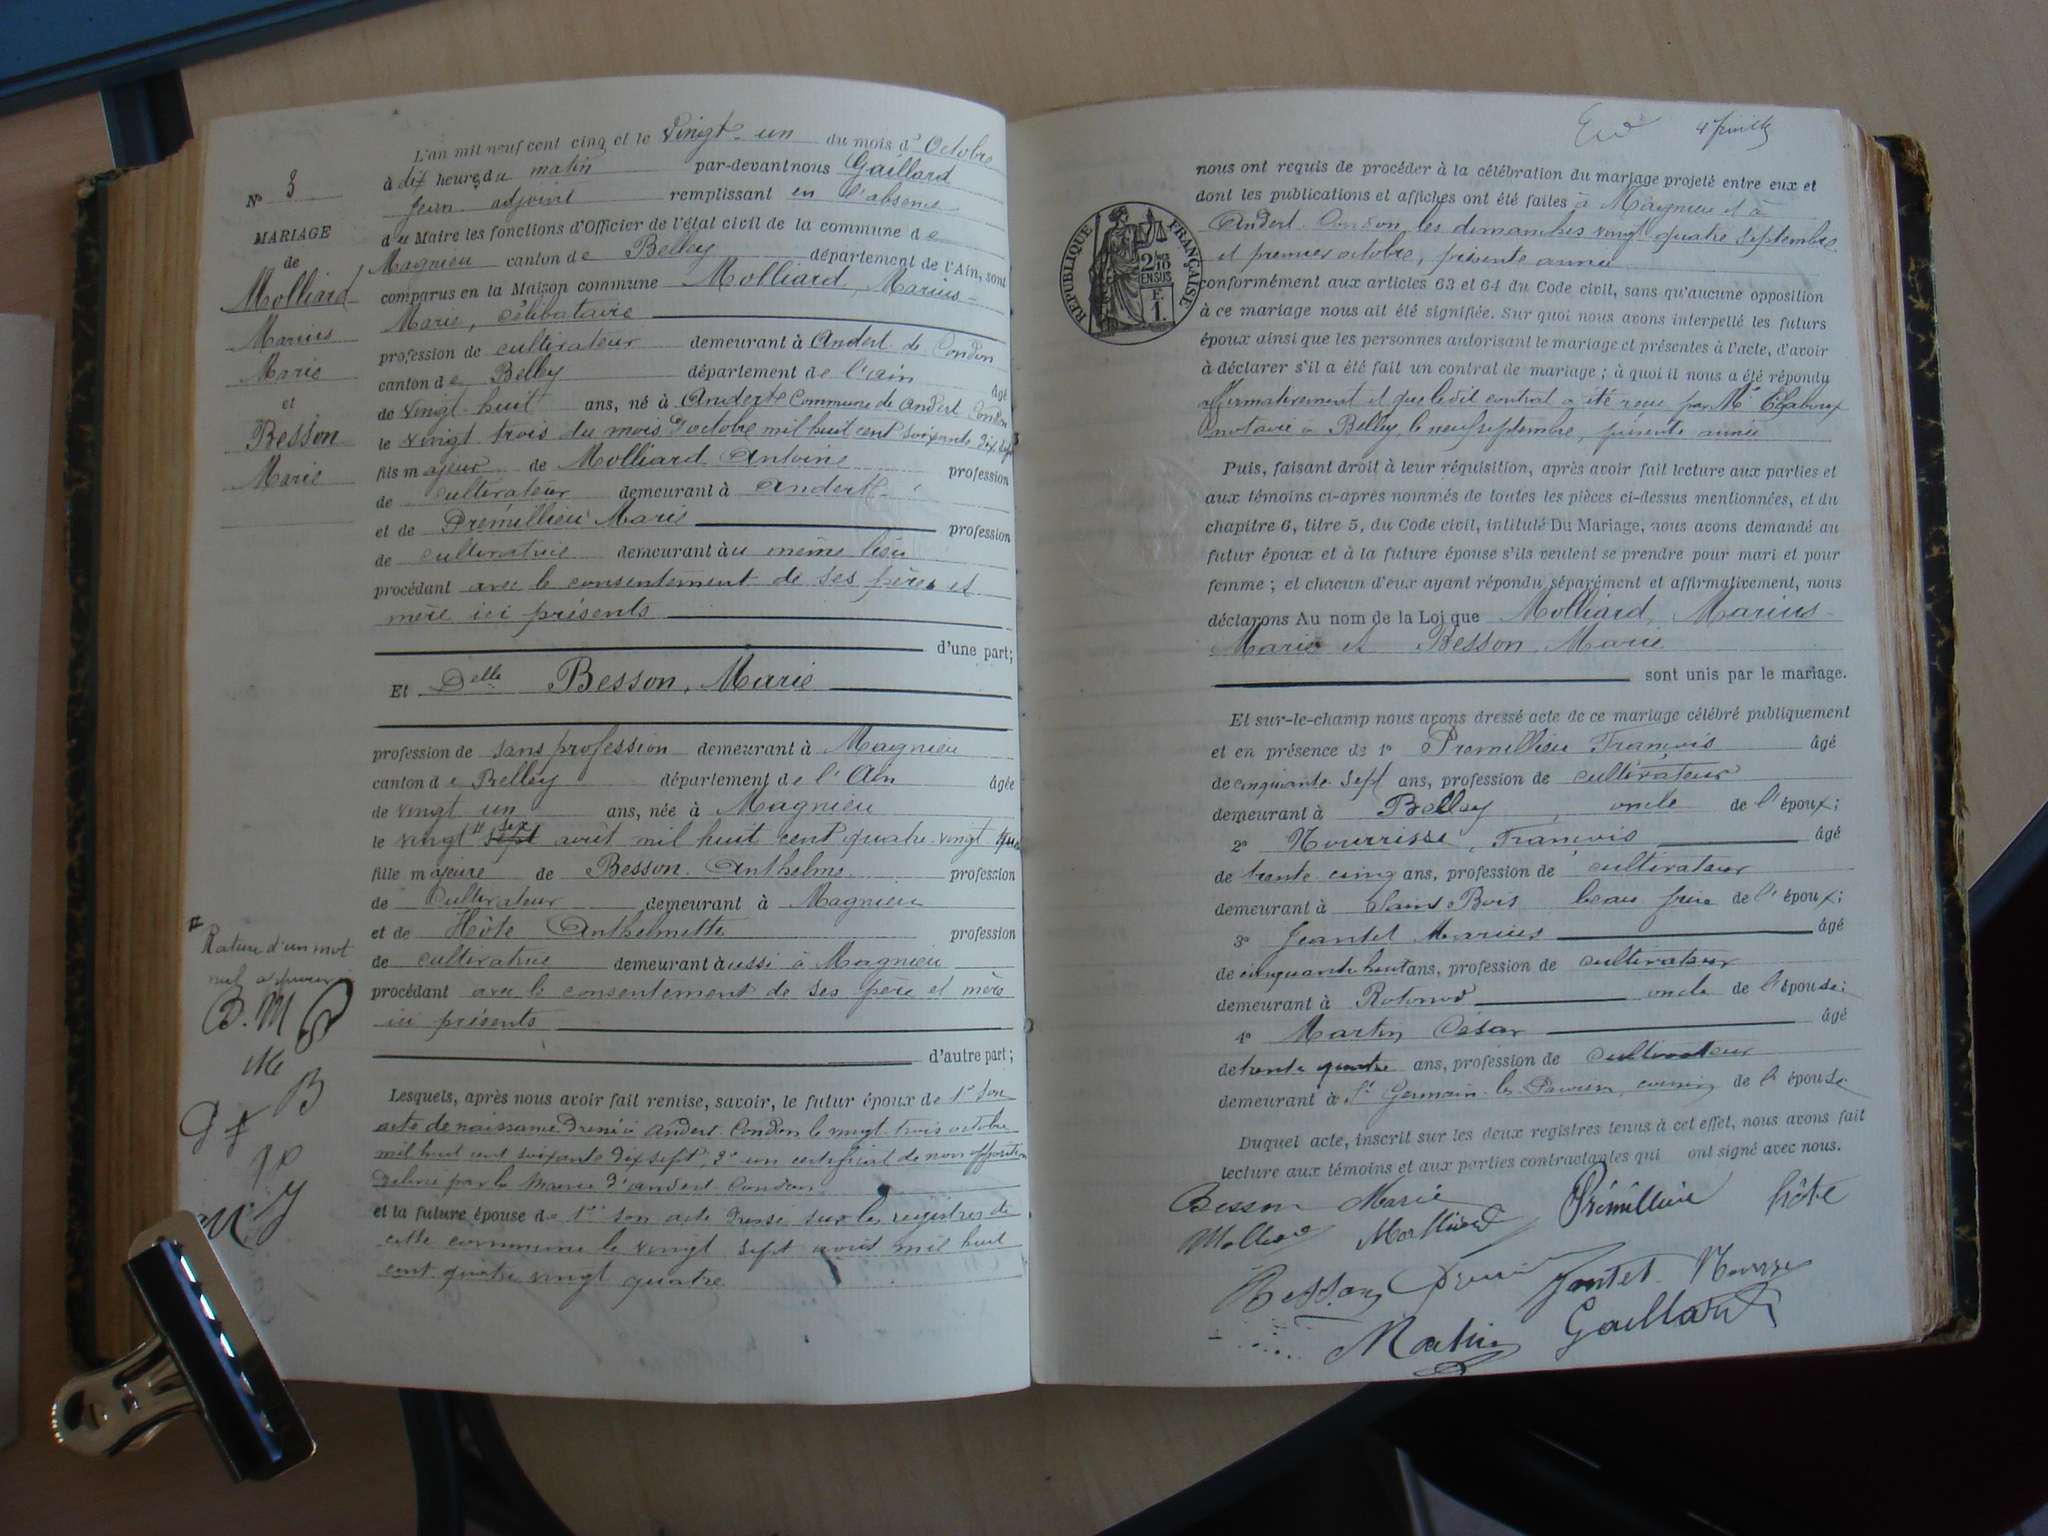 N° 3
MARIAGE
de
Molliard
Marius
Marie
et
Besson
Marie
Rature d'un mot
nul
B. M
B
L'an mil neuf cent cinq et le Vingt-un du mois d'Octobre
à dix heures du matin par-devant nous Gaillard
Jean adjoint remplissant en l'absence
du Maire les fonctions d'Officier de l'état civil de la commune de
Magnieu canton de Belley département de l'Ain, sont
comparus en la Maison commune Molliard, Marius-
Marie, célibataire
profession de cultivateur demeurant à Andert de Condon
canton de Belley département de l'ain âgé
de vingt-huit ans, né à Andert Commune de Andert Condon
le vingt trois du mois d'octobre mil huit cent soixante dix sept
fils majeur de Molliard Antoine profession
de cultivateur demeurant à Andert
et de Prémillieu Marie profession
de cultivatrice demeurant au même lieu
procédant avec le consentement de ses père et
mère ici présents
d'une part;
Et Delle Besson, Marie
profession de sans profession demeurant à Magnieu
canton de Belley département de l'Ain âgée
de vingt un ans, née à Magnieu
le vingt six sept août mil huit cent quatre-vingt quatre
fille majeure de Besson Anthelme profession
de Cultivateur demeurant à Magnieu
et de Hôte Anthelmette profession
de cultivatrice demeurant aussi à Magnieu
procédant avec le consentement de ses père et mère
ici présents
d'autre part;
Lesquels, après nous avoir fait remise, savoir, le futur époux de 1° son
acte de naissance dressé à Andert-Condon le vingt-trois octobre
mil huit cent soixante dix sept, 2° un certificat de non opposition
délivré par le Maire d'Andert-Condon
et la future épouse de 1° son acte dressé sur les registres de
cette commune le vingt sept août mil huit
cent quatre vingt quatre
RÉPUBLIQUE FRANÇAISE
2/10 EN SUS
F. 1.
nous ont requis de procéder à la célébration du mariage projeté entre eux et
dont les publications et affiches ont été faites à Magnieu et à
Andert-Condon les dimanches vingt-quatre septembre
et premier octobre, présente année
conformément aux articles 63 et 64 du Code civil, sans qu'aucune opposition
à ce mariage nous ait été signifiée. Sur quoi nous avons interpellé les futurs
époux ainsi que les personnes autorisant le mariage et présentes à l'acte, d'avoir
à déclarer s'il a été fait un contrat de mariage ; à quoi il nous a été répondu
affirmativement et que ledit contrat a été reçu par Me
notaire à Belley, le neuf septembre, présente année
Puis, faisant droit à leur réquisition, après avoir fait lecture aux parties et
aux témoins ci-après nommés de toutes les pièces ci-dessus mentionnées, et du
chapitre 6, titre 5, du Code civil, intitulé Du Mariage, nous avons demandé au
futur époux et à la future épouse s'ils veulent se prendre pour mari et pour
femme ; et chacun d'eux ayant répondu séparément et affirmativement, nous
déclarons Au nom de la Loi que Molliard, Marius-
Marie et Besson, Marie
sont unis par le mariage.
Et sur-le-champ nous avons dressé acte de ce mariage célébré publiquement
et en présence de 1° Premillieu François âgé
de cinquante sept ans, profession de cultivateur
demeurant à Belley, oncle de l'époux;
2° Nourrisse, François âgé
de trente-cinq ans, profession de cultivateur
demeurant à Clairs Bois beau frère de l'époux;
3° Jeantet Marius âgé
de cinquante huit ans, profession de cultivateur
demeurant à Rotonod oncle de l'épouse;
4° Martin César âgé
de trente quatre ans, profession de cultivateur
demeurant à St Germain-les-Paroisses, cousin de l'épouse
Duquel acte, inscrit sur les deux registres tenus à cet effet, nous avons fait
lecture aux témoins et aux parties contractantes qui ont signé avec nous.
Besson Marie Prémillieu hôte
Molliard Molliard
Besson Jantet Nourrisse
Martin Gaillard